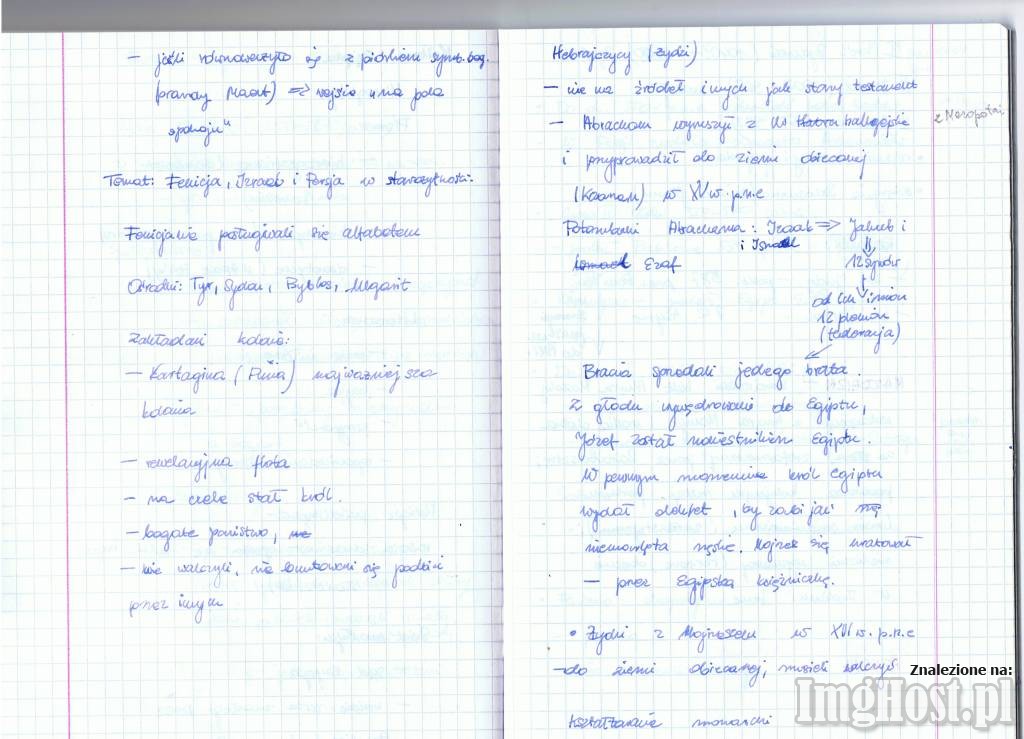 – jeśli równoważyło się z piórkiem symb. bog.
(prawdy Maat) => wejście „na pola
spokoju"
Temat: Fenicja, Izrael i Persja w starożytności.
Fenicjanie posługiwali się alfabetem
Ośrodki: Tyr, Sydon, Byblos, Ugarit
Zakładali kolonie:
– Kartagina ( ) najważniejsza
kolonia
– rewelacyjna flota
– na czele stał król.
– bogate państwo,
– nie walczyli, nie buntowali się podbici
przez innych
Hebrajczycy (żydzi)
– nie ma źródeł innych jak stary testament
– Abracham wyruszył z Ur z Mezopotami
i przyprowadził do ziemi obiecanej
(Kaanan) w XV w. p.n.e
Potomkami Abrachama: Izaak => Jakub i
i Ismael
Ezaf
12 synów
od ich imion
12 plemion
(federacja)
Bracia sprzedali jednego brata.
Z głodu wywędrowanie do Egiptu,
Józef został namiestnikiem Egiptu.
W pewnym momencie król Egiptu
wydał dekret, by zabijać
niemowlęta męskie. Mojżesz się uratował
– przez Egipską księżniczkę.
• Żydzi z Mojżeszem w XIII w. p.n.e
– do ziemi obiecanej, musieli walczyć
Kształtowanie monarchi
Znalezione na:
ImgHost.pl